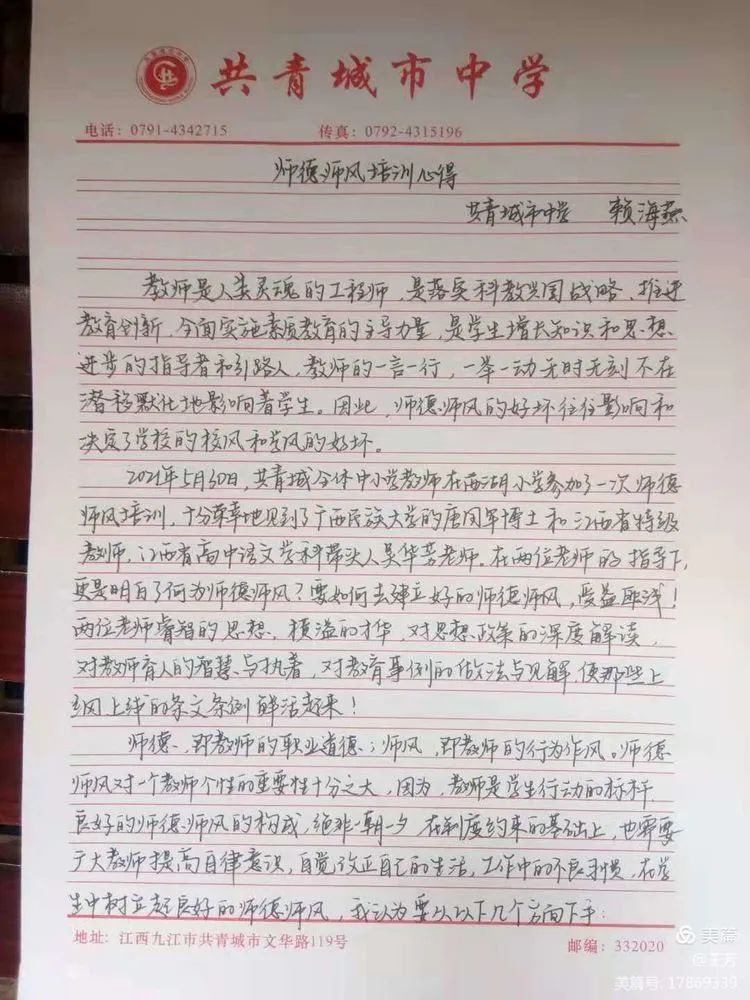 共青城市中学
电话: 0791-4342715 传真: 0792-4315196
师德师风培训心得
共青城市中学 赖海燕
教师是人类灵魂的工程师，是落实科教兴国战略、推进
教育创新，全面实施素质教育的主导力量，是学生增长知识和思想
进步的指导者和引路人，教师的一言一行，一举一动无时无刻不在
潜移默化地影响着学生。因此，师德师风的好坏往往影响和
决定了学校的校风和学风的好坏。
2021年5月30日，共青城全体中小学教师在西湖小学参加了一次师德
师风培训，十分荣幸地见到了广西民族大学的唐国军博士和江西省特级
教师，江西省高中语文学科带头人吴华芳老师。在两位老师的指导下，
更是明白了何为师德师风？要如何去建立好的师德师风，受益匪浅！
两位老师睿智的思想，横溢的才华，对思想政策的深度解读，
对教师育人的智慧与执着，对教育事例的做法与见解，使那些上
纲上线的条文条例鲜活起来！
师德，即教师的职业道德；师风，即教师的行为作风。师德
师风对一个教师个性的重要性十分之大，因为，教师是学生行动的标杆
良好的师德师风的构成，绝非一朝一夕，在制度约束的基础上，也需要
广大教师提高自律意识，自觉改正自己的生活，工作中的不良习惯，在学
生中树立起良好的师德师风，我认为要从以下几个方面下手：
地址: 江西九江市共青城市文华路119号 邮编: 332020
美篇
@王芳
美篇号: 17869339